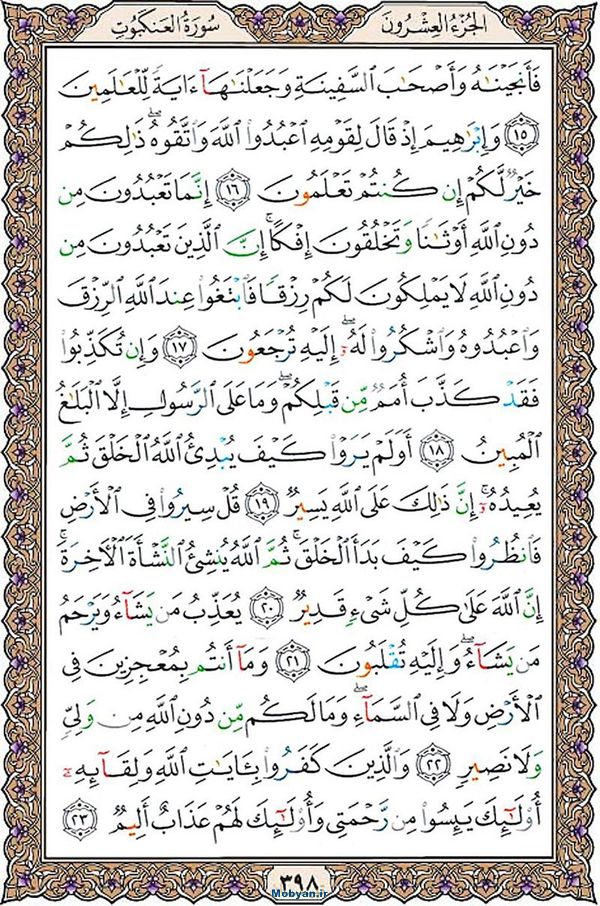 الجزء العشرون
سورة العنكبوت
فَأَنجَيْنَٰهُ وَأَصْحَٰبَ ٱلسَّفِينَةِ وَجَعَلْنَٰهَآ ءَايَةً لِّلْعَٰلَمِينَ
١٥ وَإِبْرَٰهِيمَ إِذْ قَالَ لِقَوْمِهِ ٱعْبُدُوا۟ ٱللَّهَ وَٱتَّقُوهُ ۖ ذَٰلِكُمْ
خَيْرٌ لَّكُمْ إِن كُنتُمْ تَعْلَمُونَ ١٦ إِنَّمَا تَعْبُدُونَ مِن
دُونِ ٱللَّهِ أَوْثَٰنًا وَتَخْلُقُونَ إِفْكًا ۚ إِنَّ ٱلَّذِينَ تَعْبُدُونَ مِن
دُونِ ٱللَّهِ لَا يَمْلِكُونَ لَكُمْ رِزْقًا فَٱبْتَغُوا۟ عِندَ ٱللَّهِ ٱلرِّزْقَ
وَٱعْبُدُوهُ وَٱشْكُرُوا۟ لَهُۥٓ ۖ إِلَيْهِ تُرْجَعُونَ ١٧ وَإِن تُكَذِّبُوا۟
فَقَدْ كَذَّبَ أُمَمٌ مِّن قَبْلِكُمْ ۖ وَمَا عَلَى ٱلرَّسُولِ إِلَّا ٱلْبَلَٰغُ
ٱلْمُبِينُ ١٨ أَوَلَمْ يَرَوْا۟ كَيْفَ يُبْدِئُ ٱللَّهُ ٱلْخَلْقَ ثُمَّ
يُعِيدُهُۥٓ ۚ إِنَّ ذَٰلِكَ عَلَى ٱللَّهِ يَسِيرٌ ١٩ قُلْ سِيرُوا۟ فِى ٱلْأَرْضِ
فَٱنظُرُوا۟ كَيْفَ بَدَأَ ٱلْخَلْقَ ۚ ثُمَّ ٱللَّهُ يُنشِئُ ٱلنَّشْأَةَ ٱلْءَاخِرَةَ ۚ
إِنَّ ٱللَّهَ عَلَىٰ كُلِّ شَىْءٍ قَدِيرٌ ٢٠ يُعَذِّبُ مَن يَشَآءُ وَيَرْحَمُ
مَن يَشَآءُ ۖ وَإِلَيْهِ تُقْلَبُونَ ٢١ وَمَآ أَنتُم بِمُعْجِزِينَ فِى
ٱلْأَرْضِ وَلَا فِى ٱلسَّمَآءِ ۖ وَمَا لَكُم مِّن دُونِ ٱللَّهِ مِن وَلِىٍّ
وَلَا نَصِيرٍ ٢٢ وَٱلَّذِينَ كَفَرُوا۟ بِـَٔايَٰتِ ٱللَّهِ وَلِقَآئِهِۦٓ
أُو۟لَٰٓئِكَ يَئِسُوا۟ مِن رَّحْمَتِى وَأُو۟لَٰٓئِكَ لَهُمْ عَذَابٌ أَلِيمٌ ٢٣
٣٩٨
Mobyan.ir